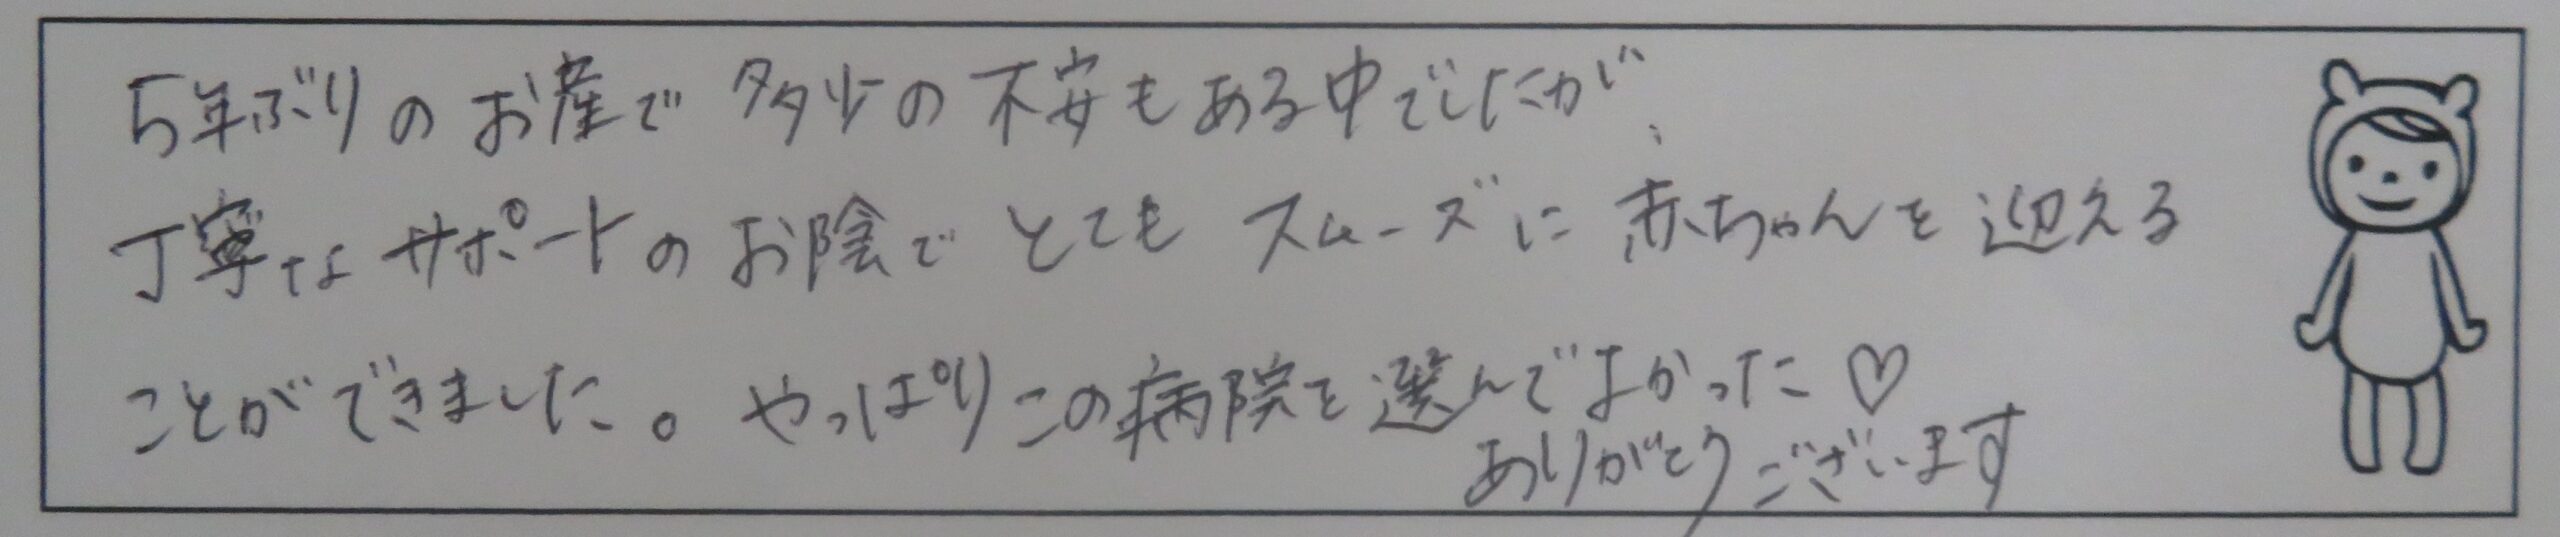 5年ぶりのお産で多少の不安もある中でしたが、
丁寧なサポートのお陰でとてもスムーズに赤ちゃんを迎える
ことができました。やっぱりこの病院を選んでよかった♡
ありがとうございます